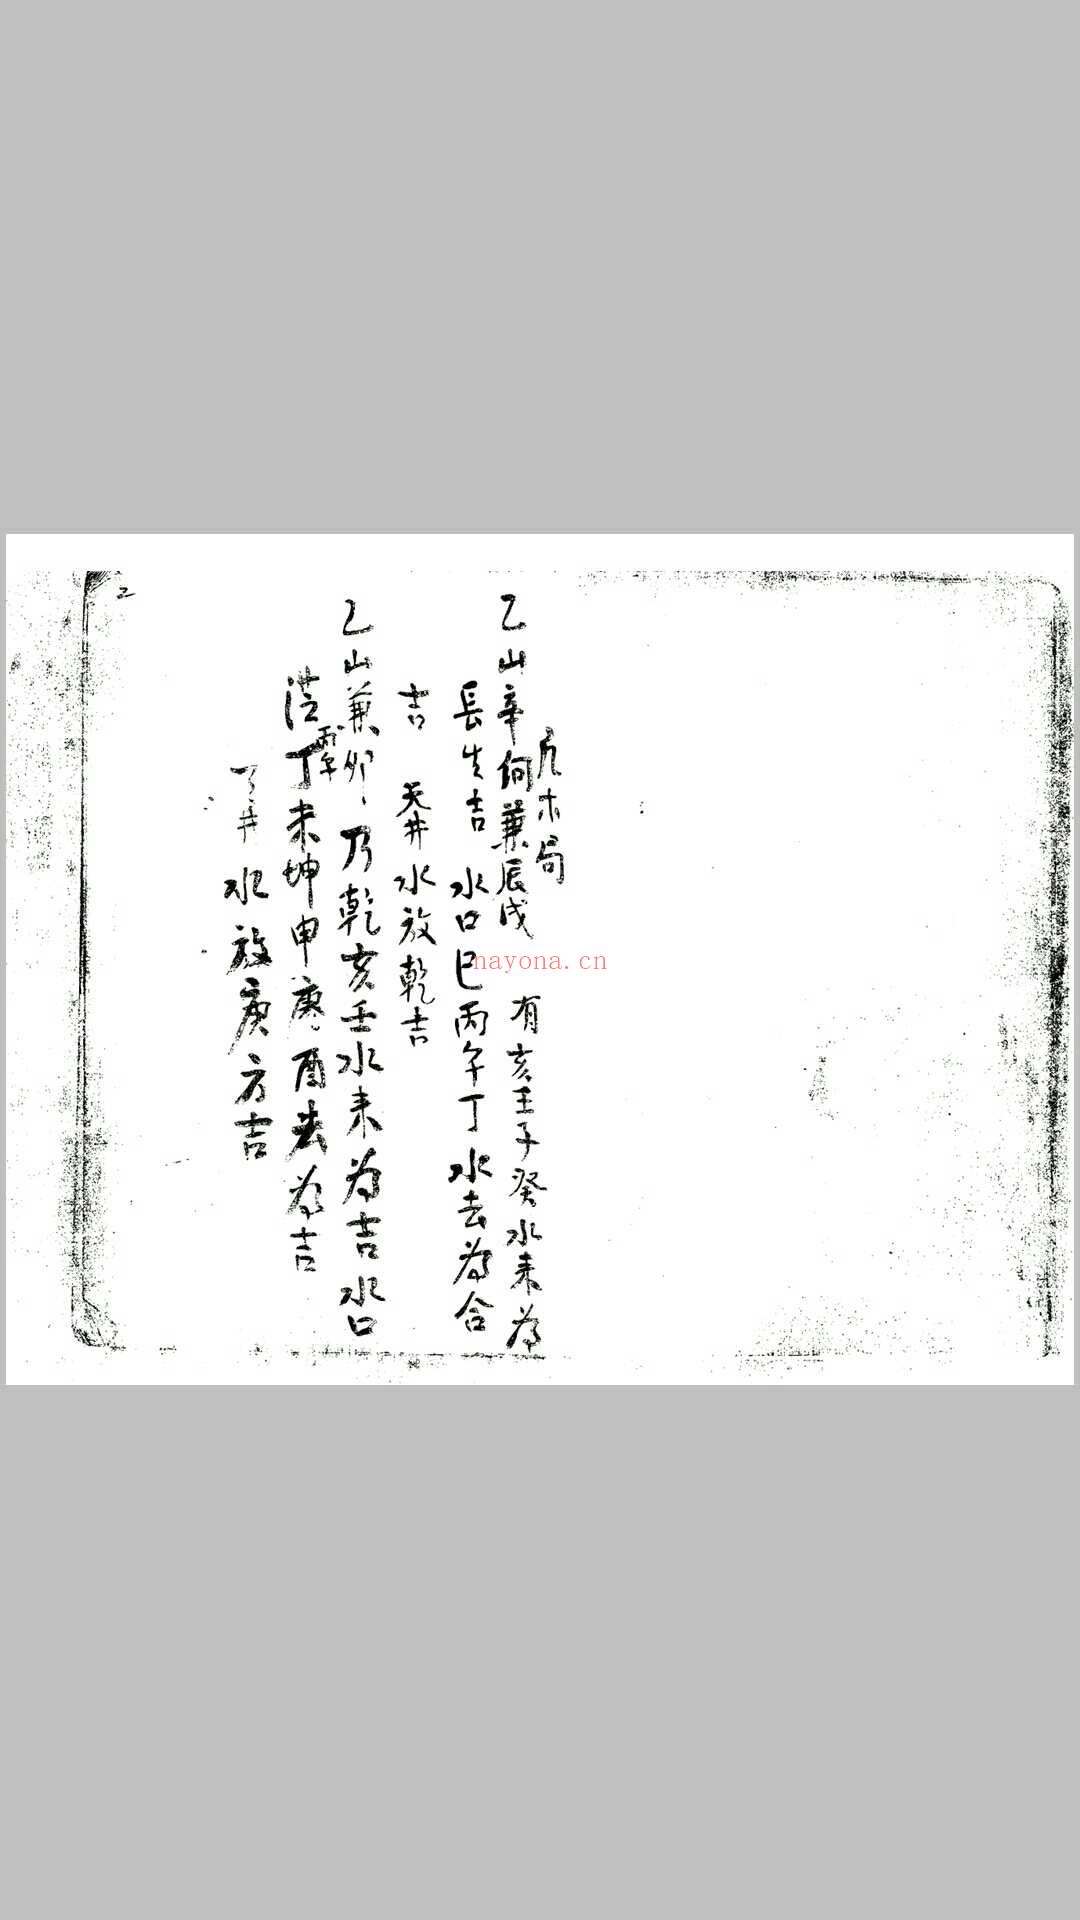 乙山辛向兼辰戌 有亥壬子癸水来为
木局
長生吉 水口巳丙午丁水去为合
吉 天井水放乾吉
乙山兼卯 乃乾亥壬水来为吉水口
丙午
丁未坤申庚酉去为吉
井水放庚方吉
nayona.cn
2